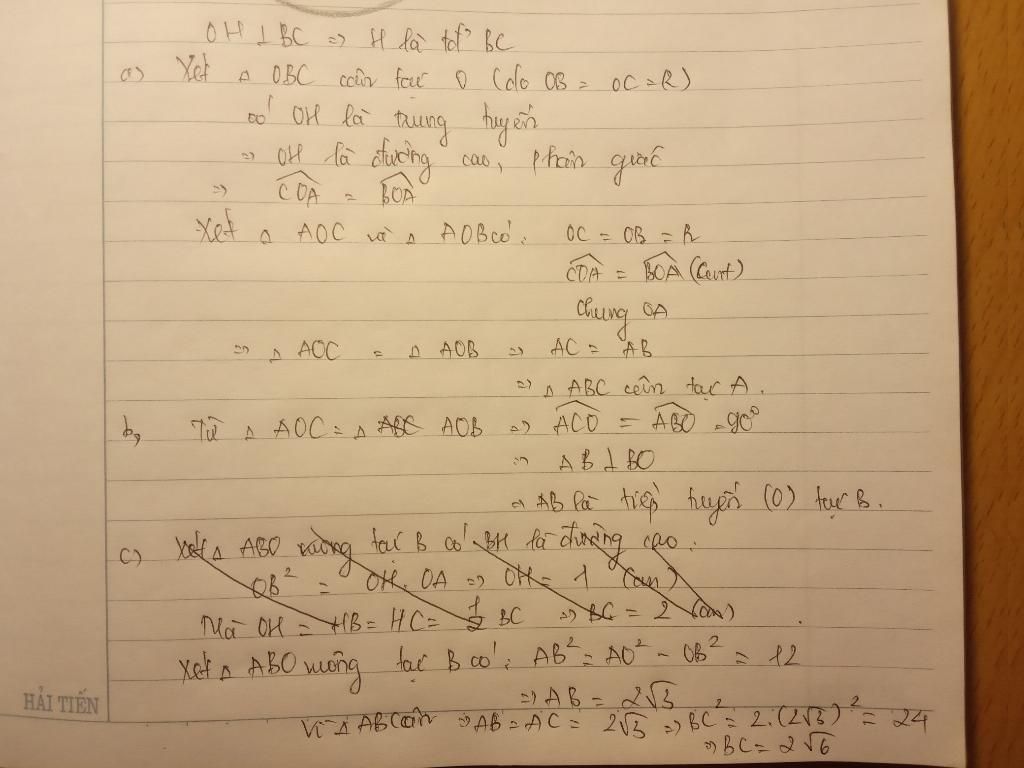 OH ⊥ BC => H là tđ' BC
a) Xét Δ OBC cân tại O (do OB = OC = R)
có OH là trung tuyến
=> OH là đường cao, phân giác
=> COA = BOA
Xét Δ AOC và Δ AOB có: OC = OB = R
COA = BOA (cmt)
Chung OA
=> Δ AOC = Δ AOB => AC = AB
=> Δ ABC cân tại A.
b, Từ Δ AOC = Δ ABC AOB => ACO = ABO = 90°
=> AB ⊥ BO
=> AB là tiếp tuyến (O) tại B.
c) Xét Δ ABO vuông tại B có BH là đường cao:
OB² = OH. OA => OH = 1 (cm)
Mà OH = HB = HC = 1/2 BC => BC = 2 (cm)
Xét Δ ABO vuông tại B có: AB² = AO² - OB² = 12
=> AB = 2√3
HẢI TIẾN
Vì Δ ABC cân => AB = AC = 2√3 => BC² = 2.(2√3)² = 24
=> BC = 2√6